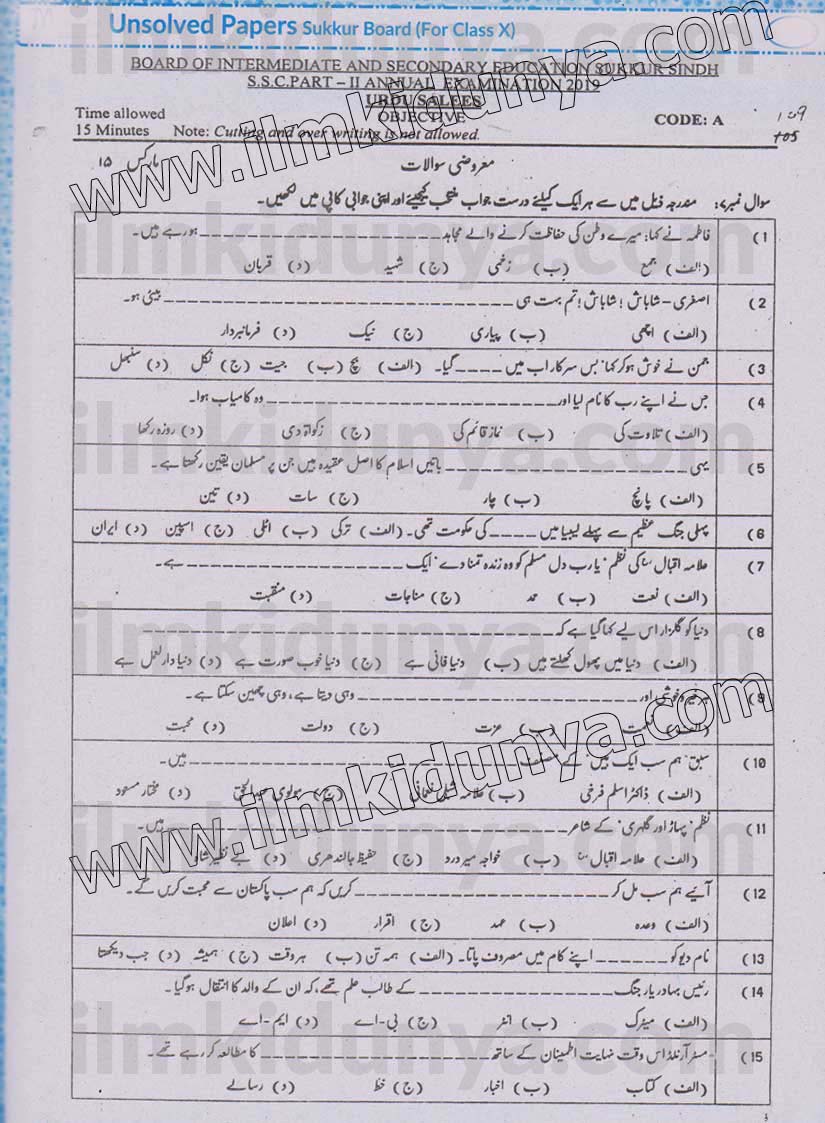 Unsolved Papers Sukkur Board (For Class X)
BOARD OF INTERMEDIATE AND SECONDARY EDUCATION SUKKUR SINDH
S.S.C.PART – II ANNUAL EXAMINATION 2019
URDU SALEES
Time allowed OBJECTIVE CODE: A 109
15 Minutes Note: Cutting and over writing is not allowed. 105
معروضی سوالات مارکس ۱۵
سوال نمبر۷: مندرجہ ذیل میں سے ہر ایک کیلئے درست جواب منتخب کیجئیے اور اپنی جوابی کاپی میں لکھیں۔
(1 فاطمہ نے کہا: میرے وطن کی حفاظت کرنے والے مجاہد ________ ہو رہے ہیں۔
(الف) جمع (ب) زخمی (ج) شہید (د) قربان
(2 اصغری – شاباش! شاباش! تم بہت ہی ________ بیٹی ہو۔
(الف) اچھی (ب) پیاری (ج) نیک (د) فرمانبردار
(3 جمن نے خوش ہو کر کہا بس سرکار اب میں ____ گیا۔ (الف) بچ (ب) جیت (ج) نکل (د) سنبھل
(4 جس نے اپنے رب کا نام لیا اور ________ وہ کامیاب ہوا۔
(الف) تلاوت کی (ب) نماز قائم کی (ج) زکواۃ دی (د) روزہ رکھا
(5 یہی ________ باتیں اسلام کا اصل عقیدہ ہیں جن پر مسلمان یقین رکھتا ہے۔
(الف) پانچ (ب) چار (ج) سات (د) تین
(6 پہلی جنگ عظیم سے پہلے لیبیا میں ____ کی حکومت تھی۔ (الف) ترکی (ب) اٹلی (ج) اسپین (د) ایران
(7 علامہ اقبالؒ کی نظم "یارب دل مسلم کو وہ زندہ تمنا دے" ایک ________ ہے۔
(الف) نعت (ب) حمد (ج) مناجات (د) منقبت
(8 دنیا کو گلزار اس لیے کہا گیا ہے کہ ________
(الف) دنیا میں پھول کھلتے ہیں (ب) دنیا فانی ہے (ج) دنیا خوب صورت ہے (د) دنیا دارلعمل ہے
(9 خوشی اور ________ وہی دیتا ہے، وہی چھین سکتا ہے۔
(الف) (ب) عزت (ج) دولت (د) محبت
(10 سبق "ہم سب ایک ہیں" کے مصنف ________ ہیں۔
(الف) ڈاکٹر اسلم فرخی (ب) علامہ شبلی نعمانی (ج) مولوی عبدالحق (د) مختار مسعود
(11 نظم "پہاڑ اور گلہری" کے شاعر ________ ہیں۔
(الف) علامہ اقبالؒ (ب) خواجہ میر درد (ج) حفیظ جالندھری (د) بے نظیر شاہ
(12 آئیے ہم سب مل کر ________ کریں کہ ہم سب پاکستان سے محبت کریں گے۔
(الف) وعدہ (ب) عہد (ج) اقرار (د) اعلان
(13 نام دیو کو ______ اپنے کام میں مصروف پاتا۔ (الف) ہمہ تن (ب) ہر وقت (ج) ہمیشہ (د) جب دیکھتا
(14 رئیس بہادر یار جنگ ________ کے طالب علم تھے، کہ ان کے والد کا انتقال ہوگیا۔
(الف) میٹرک (ب) انٹر (ج) بی-اے (د) ایم-اے
(15 مسٹر آرنلڈ اس وقت نہایت اطمینان کے ساتھ ________ کا مطالعہ کر رہے تھے۔
(الف) کتاب (ب) اخبار (ج) خط (د) رسالے
www.ilmkidunya.com
www.ilmkidunya.com
ilmkidunya
ilmkidunya
ilmkidunya
ilmkidunya
ilmkidunya
ilmkidunya